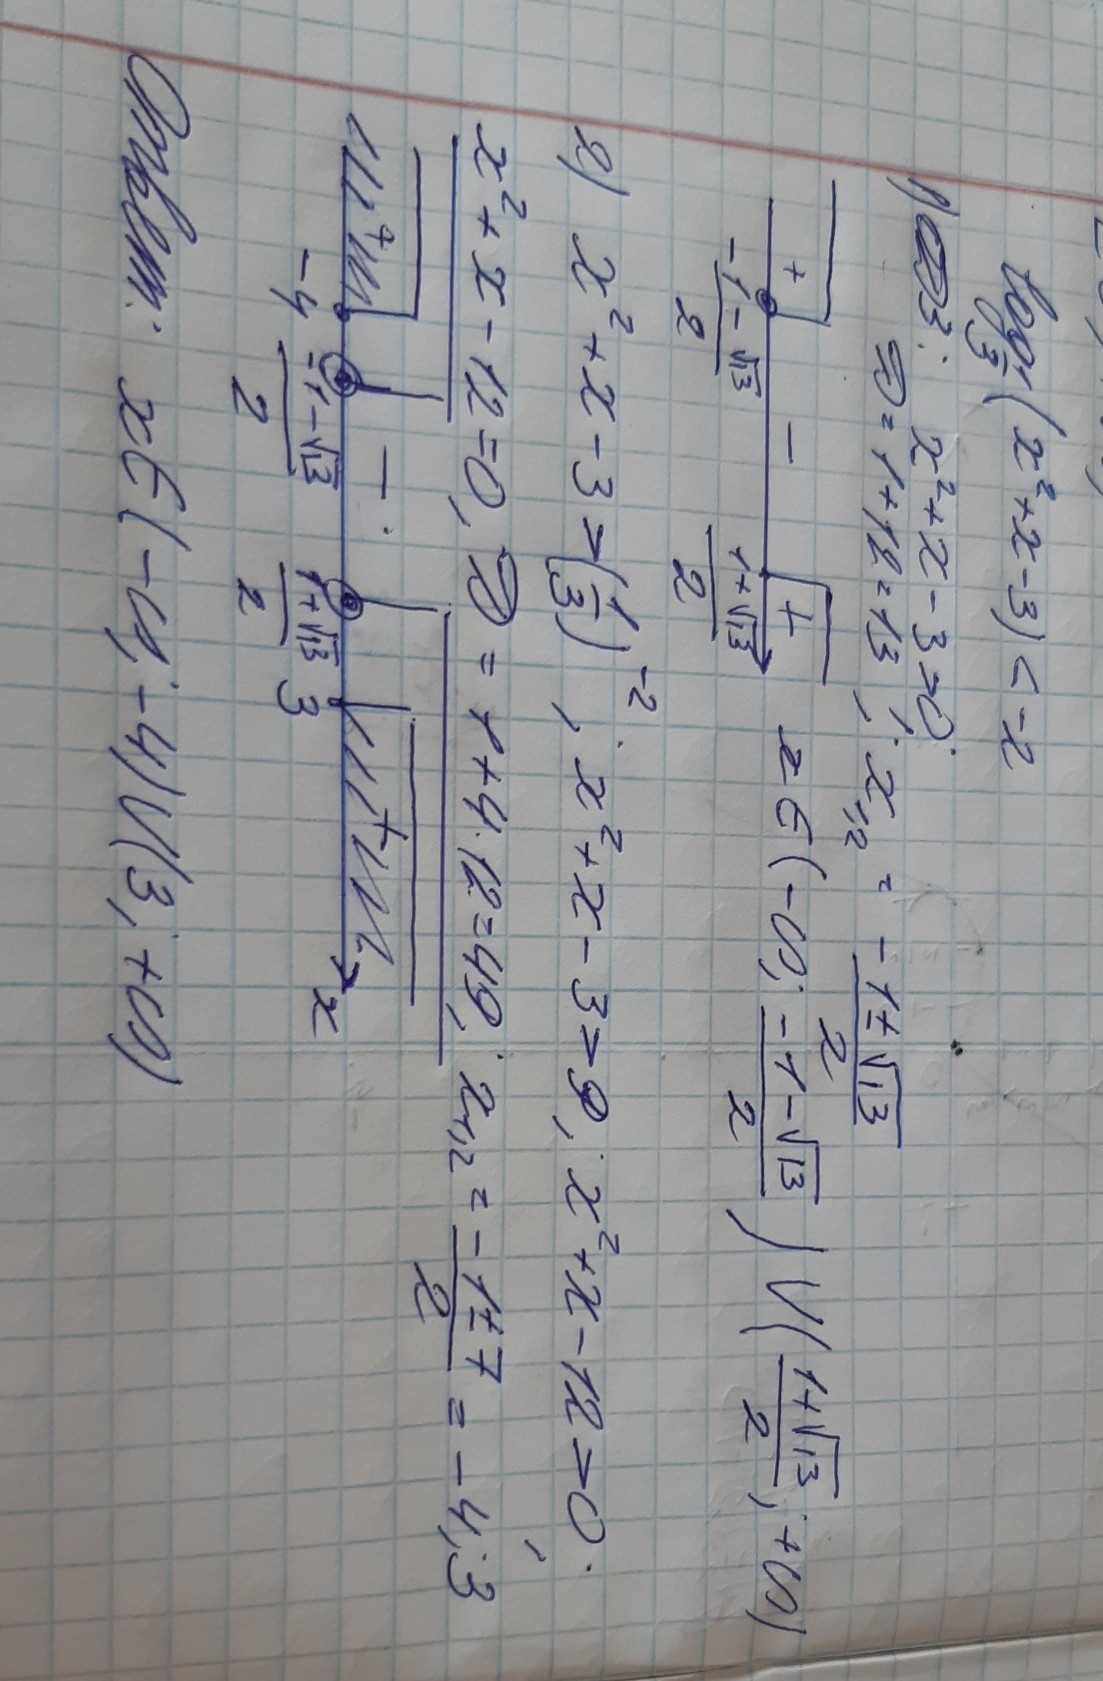 log_{1/3}(x² + x - 3) < -2
1) ОДЗ: x² + x - 3 > 0;
D = 1 + 12 = 13; x₁,₂ = (-1 ± √13)/2
+ - +
(-1 - √13)/2 (1 + √13)/2 x ∈ (-∞; (-1 - √13)/2) ∪ ((1 + √13)/2; +∞)
2) x² + x - 3 > (1/3)⁻²; x² + x - 3 > 9; x² + x - 12 > 0;
x² + x - 12 = 0, D = 1 + 4·12 = 49; x₁,₂ = (-1 ± 7)/2 = -4; 3
+ - +
-4 (-1 - √13)/2 (1 + √13)/2 3 x
Ответ: x ∈ (-∞; -4) ∪ (3; +∞)